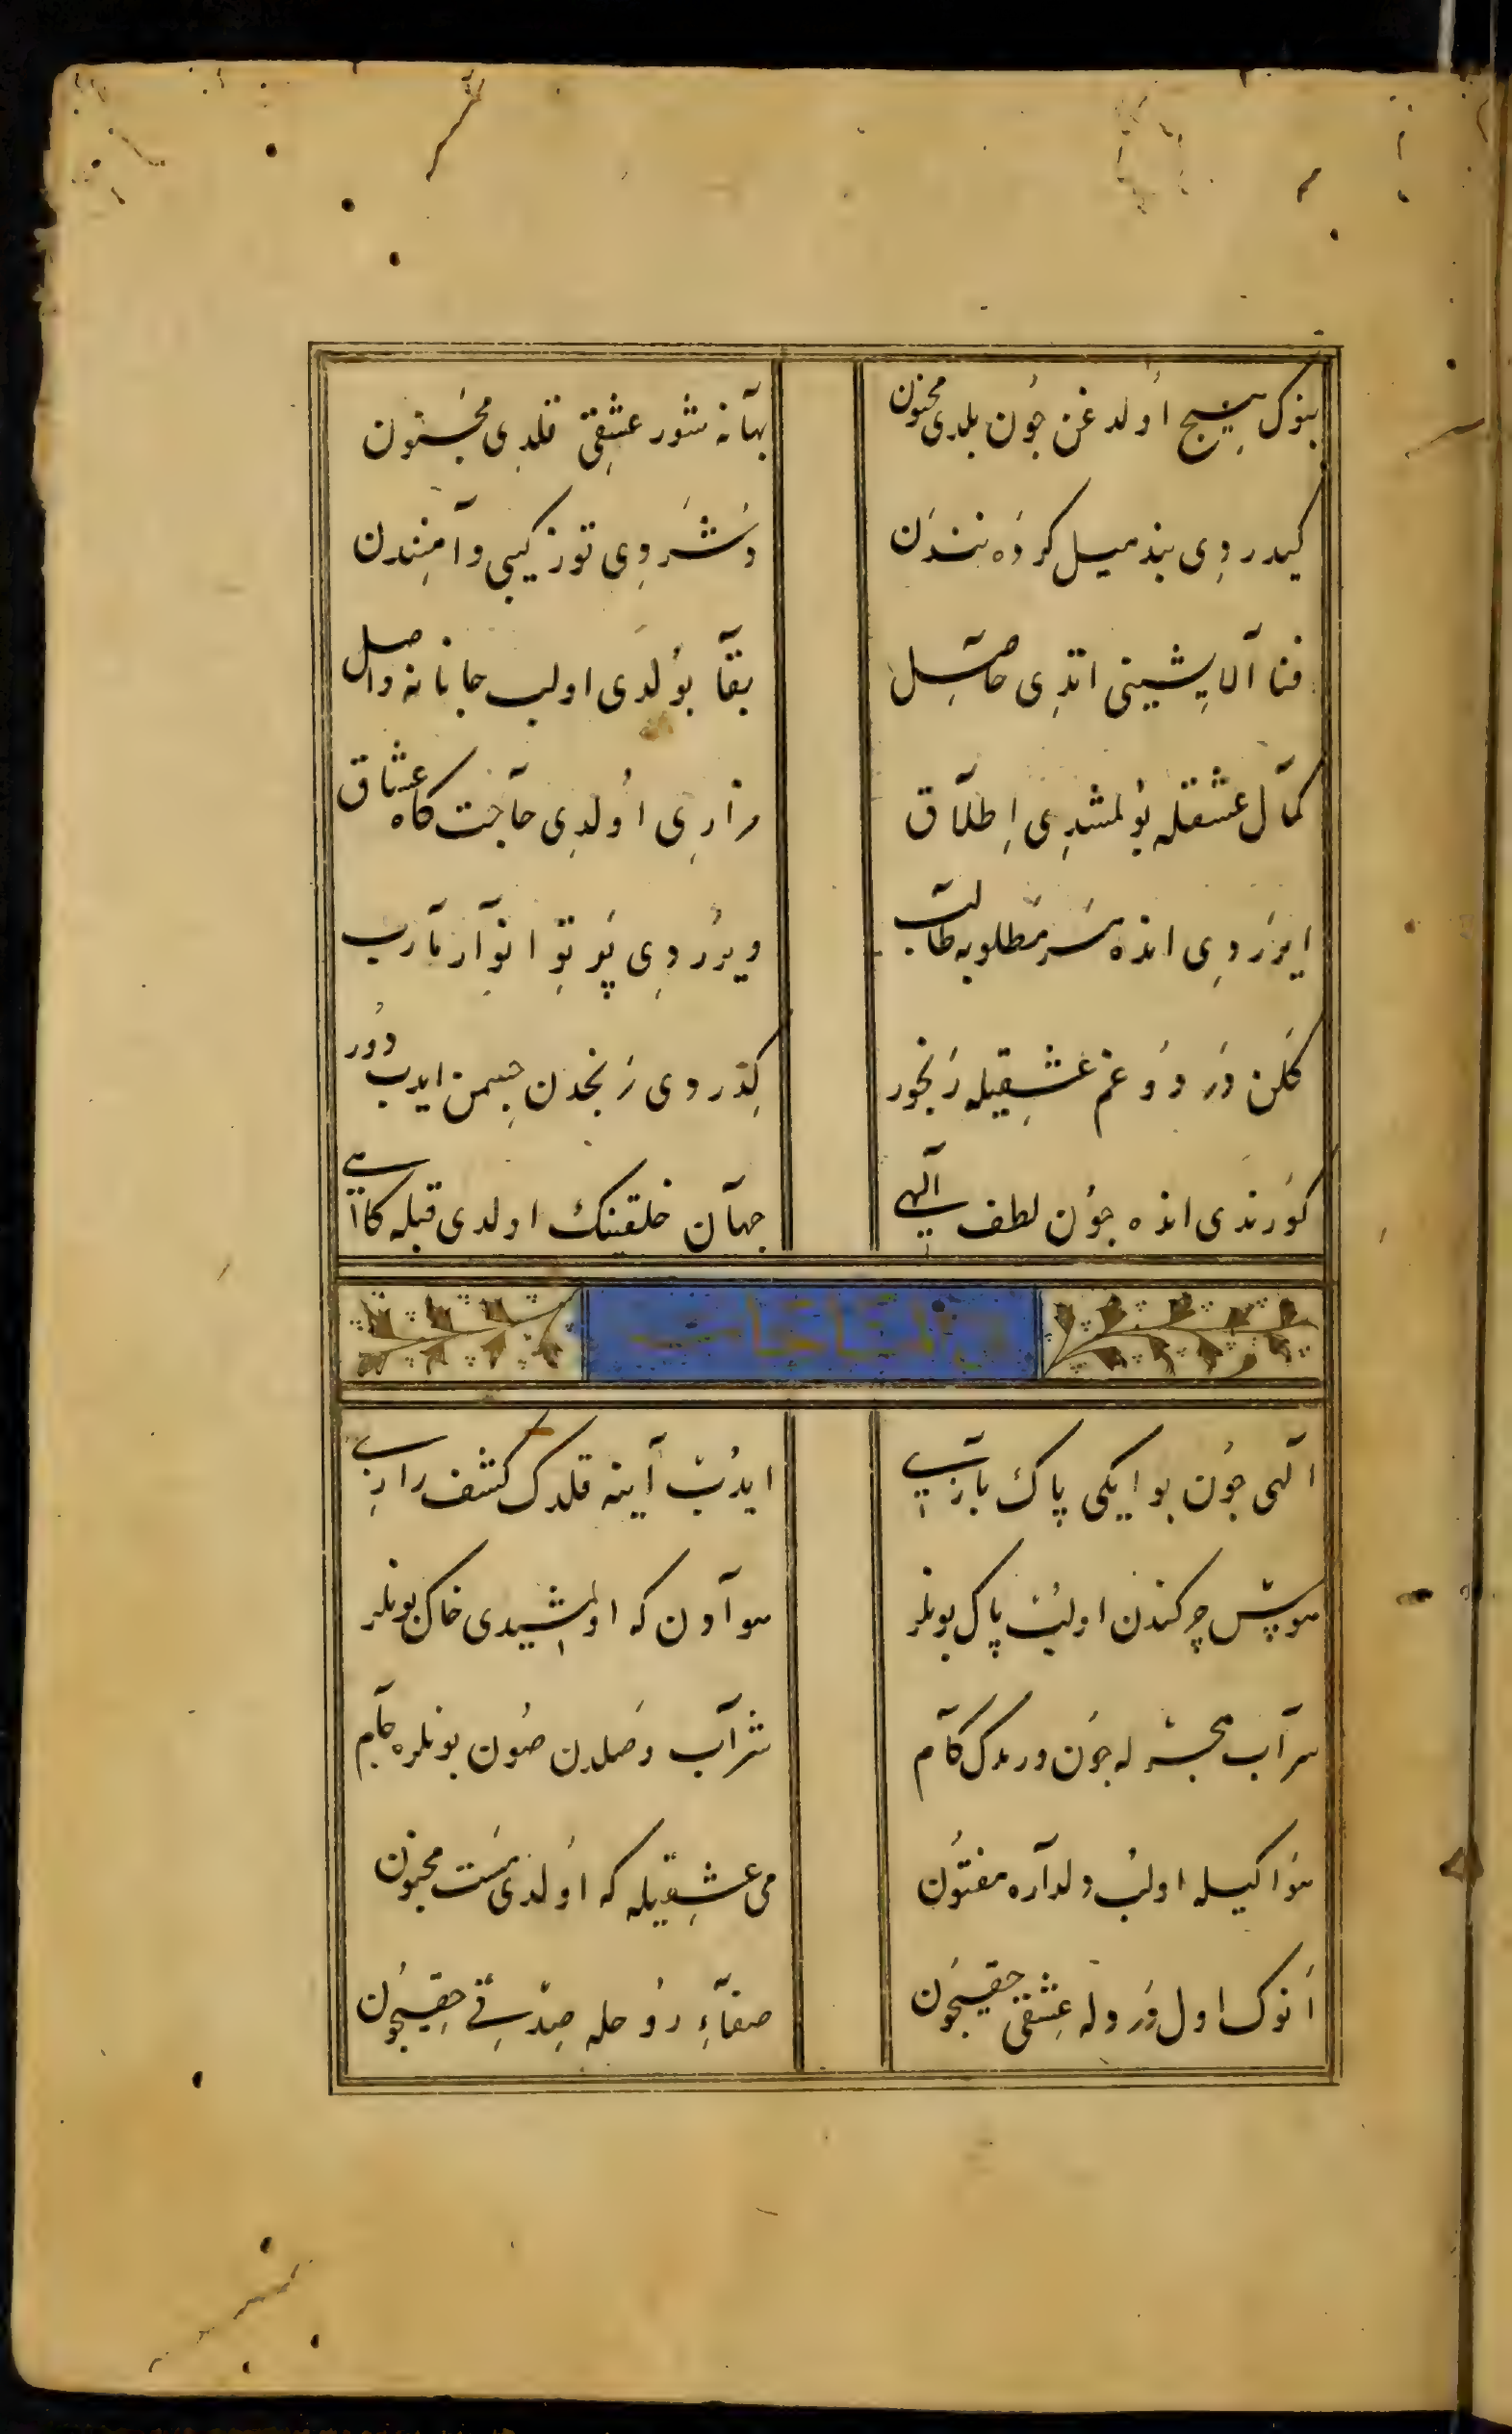 بنوک هیچ اولدغن چون بلدی مجنون بهانه شور عشقی قلدی مجنون
کیدردی بند میل کرده تندن دشردی توز کیبی دامنندن
فنا آلایشینی اتدی حاصل بقا بولدی اولب جانانه واصل
کمال عشقله بولمشدی اطلاق مزاری اولدی حاجت کاه عشاق
ایرردی انده هر مطلوبه طالب ویرردی پرتو انوار مآرب
کلن درد و غم عشقیله رنجور کدردی رنجدن جسمن ایدب دور
کورندی انده چون لطف الهی جهان خلقینک اولدی قبله کاهی
فی المناجات
الهی چون بو ایکی پاک بازی ایدب آینه قلدک کشف رازی
هوس چرکندن اولب پاک بونلر هوادن که اولمشیدی خاک بونلر
سراب هجرله چون ویرمدک کام شراب وصلدن صون بونلره جام
هوا کیله اولب دلداره مفتون می عشقیله که اولدی مست مجنون
انوک اول درد وله عشقی حقیچون صفاء روحله صدقی حقیچون